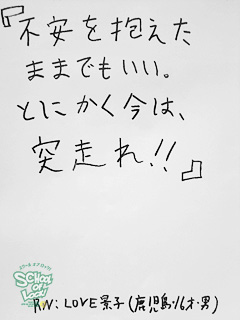 『不安を抱えた
ままでもいい。
とにかく今は、
突走れ!!』
SCHOOL OF LOCK!
RN:LOVE景子(鹿児島・16才・男)